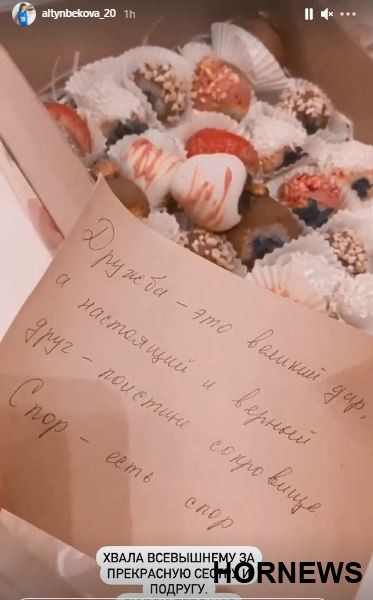 altynbekova_20 1h
Дружба – это великий дар,
а настоящий и верный
друг – поистине сокровище.
Спор – есть спор
ХВАЛА ВСЕВЫШНЕМУ ЗА
ПРЕКРАСНУЮ И
ПОДРУГУ.
HORNEWS